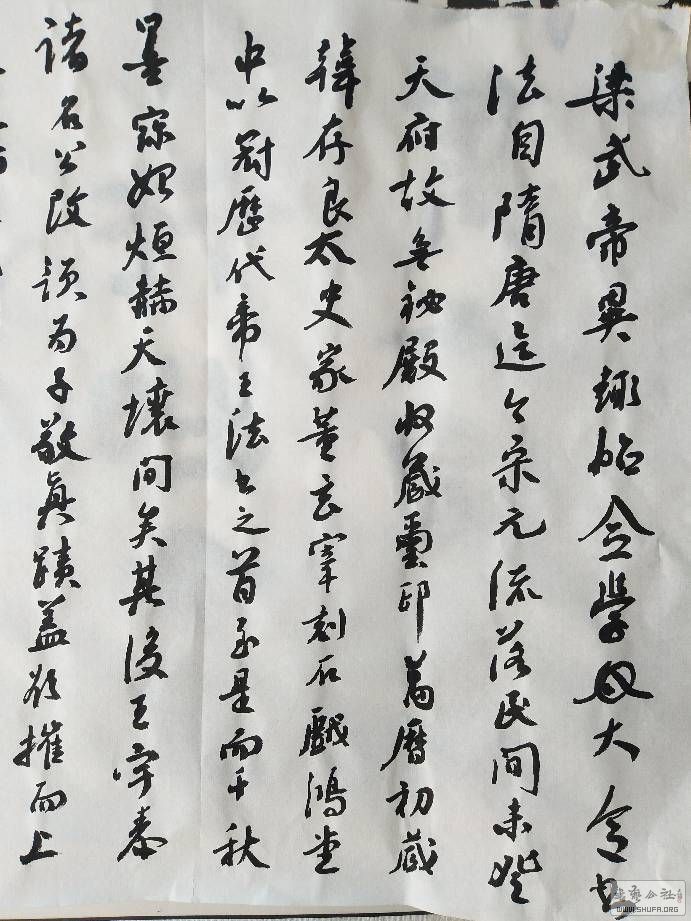 梁武帝異趣帖全學大令書
法自隋唐迄宋元流落民間未登
天府故無祕殿收藏璽印萬曆初藏
韓存良太史家董玄宰刻石戲鴻堂
中以冠歷代帝王法書之首於是而千秋
墨寶始烜赫天壤間矣其後王宇泰
諸名公改題為子敬眞蹟蓋欲摧而上
公社
WWW.SHUFA.ORG